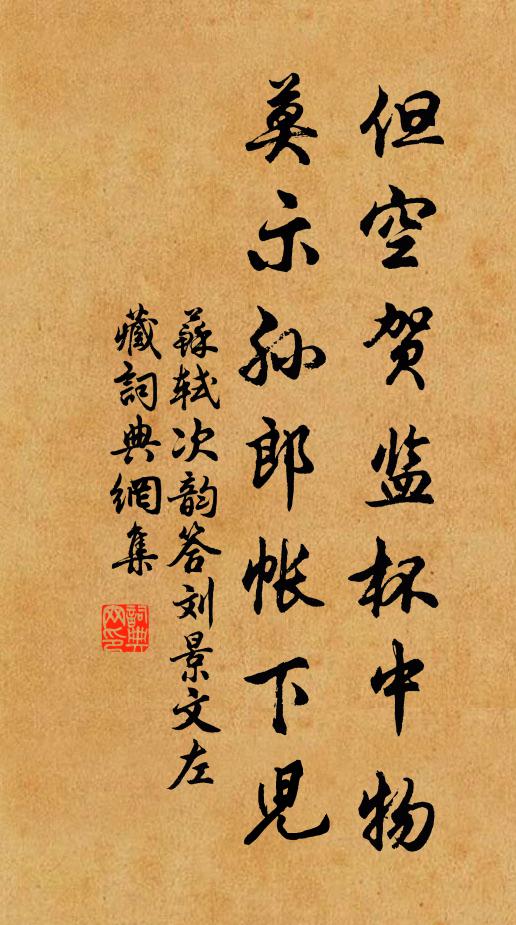 但空贺监杯中物
莫示孙郎帐下児
蘇轼次韵答刘景文左
藏詞典網集
詞典网印